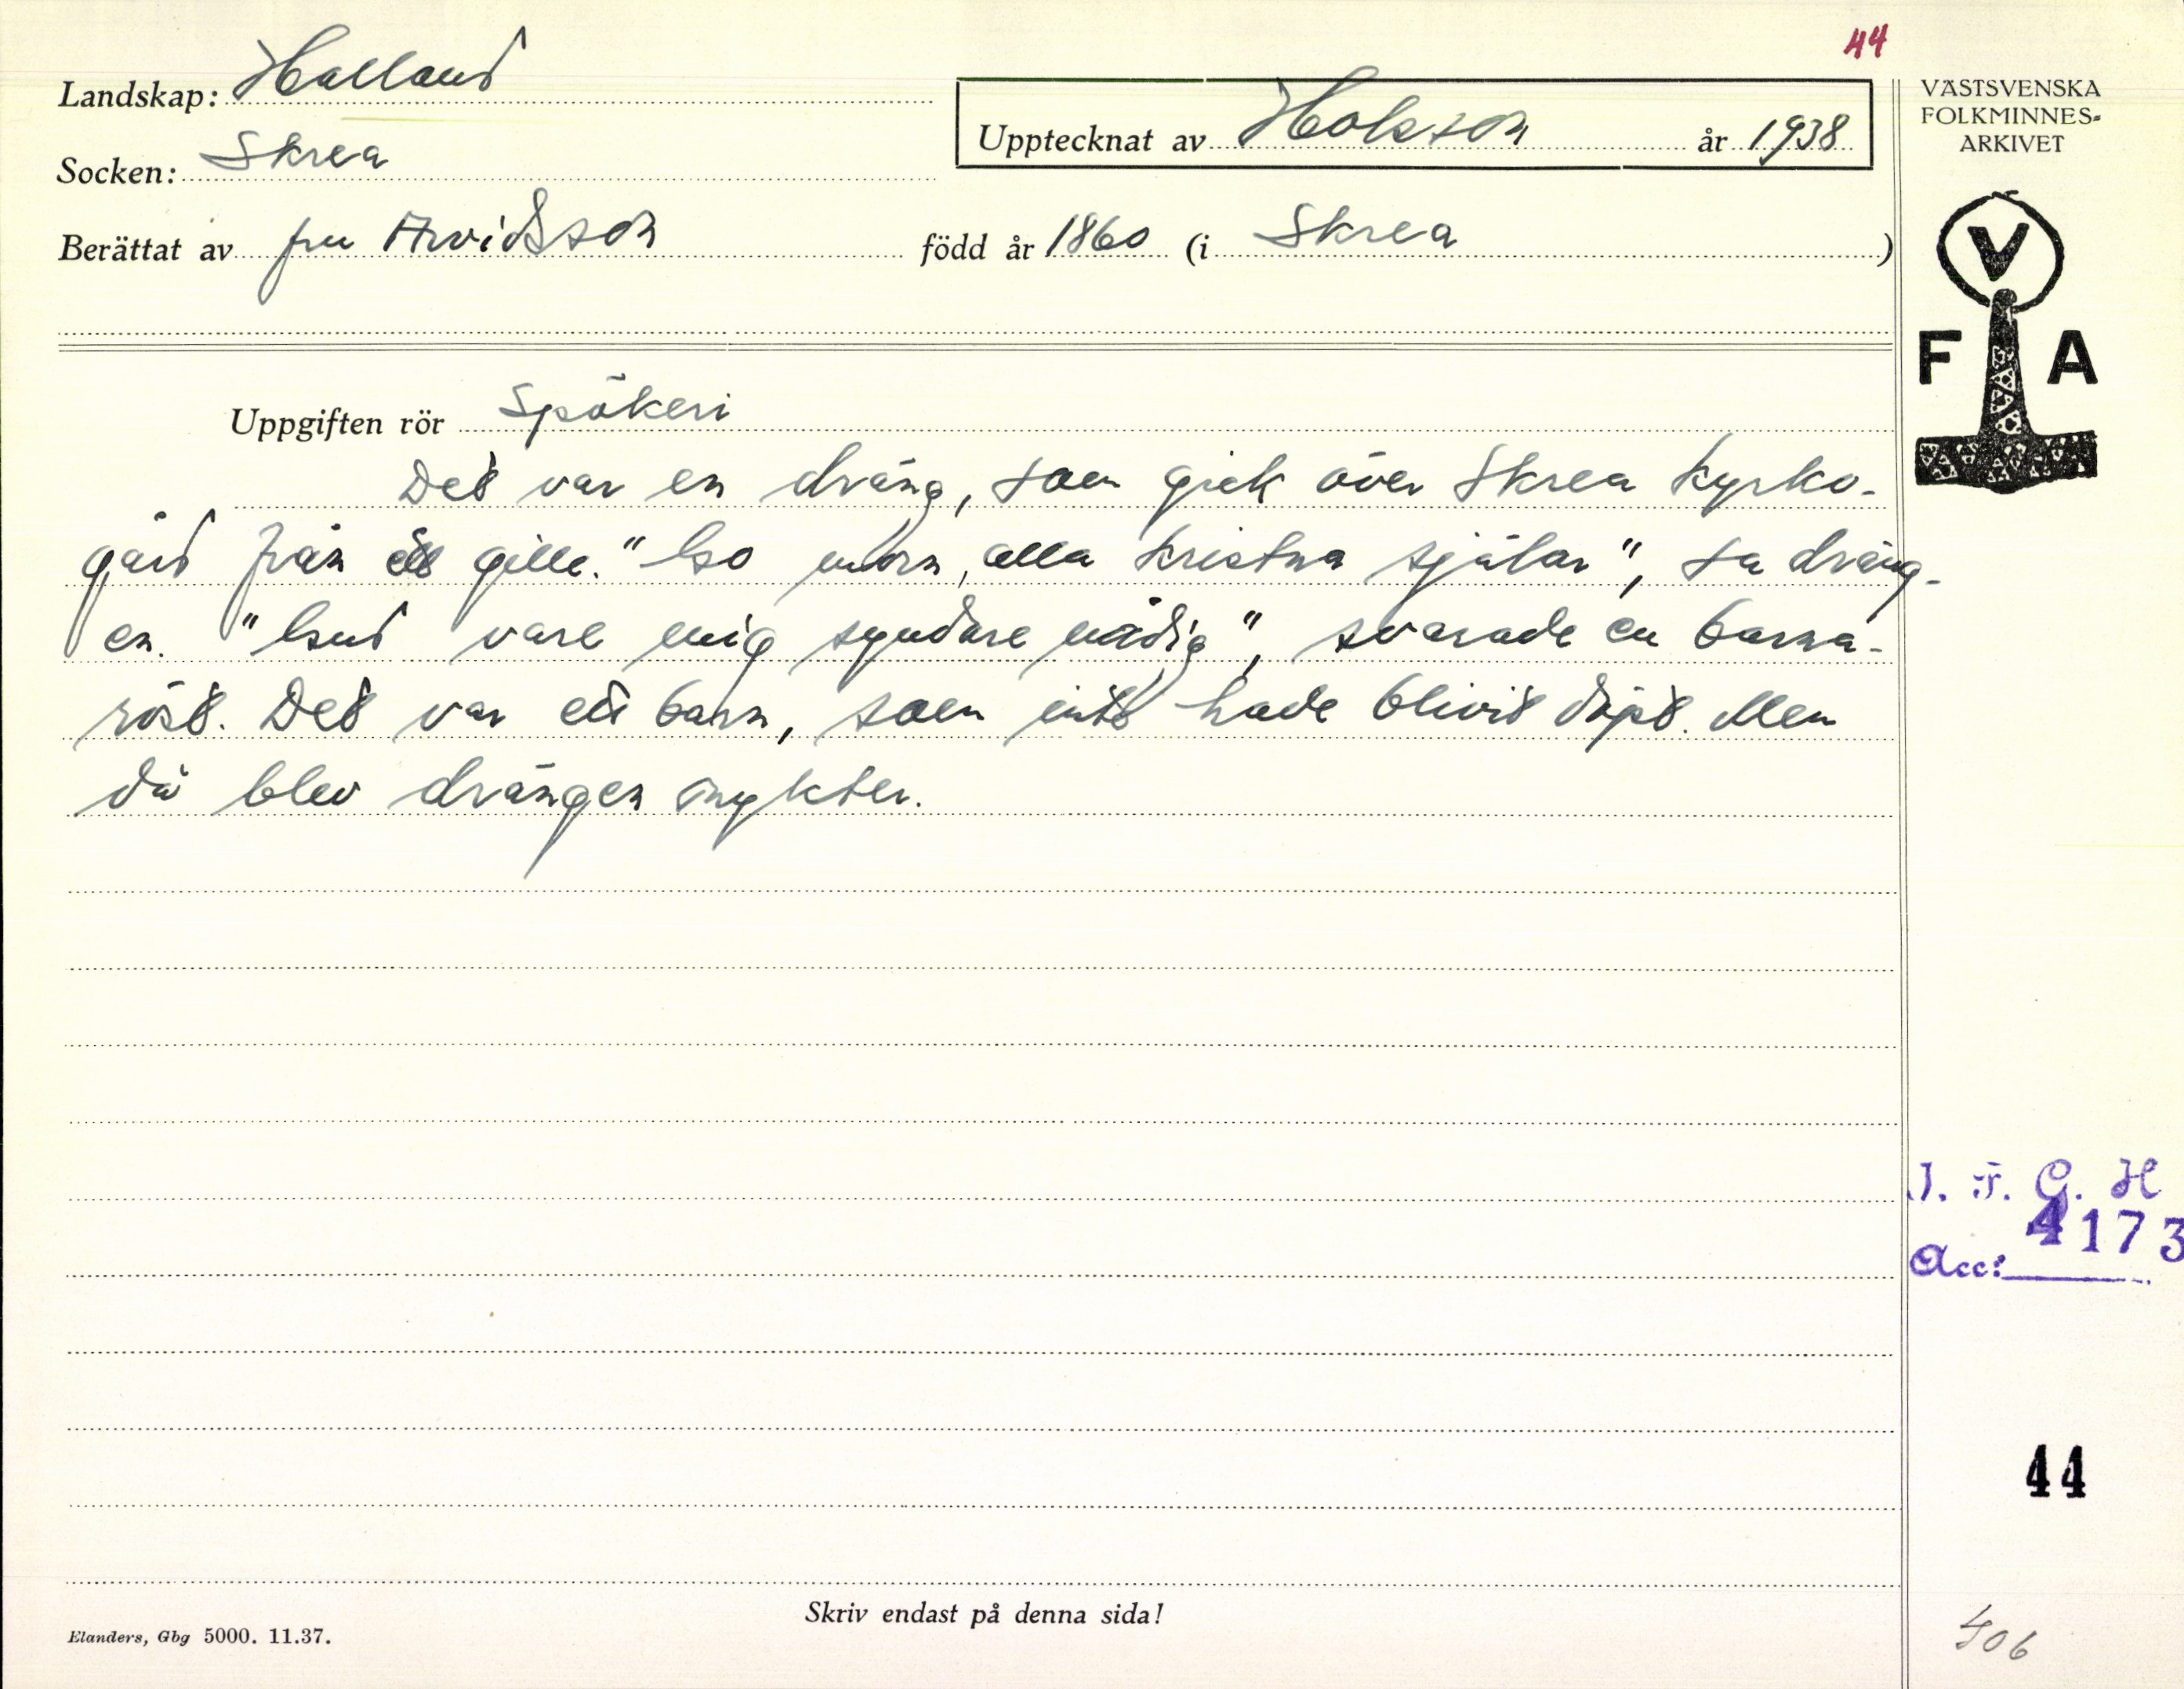 44
Landskap: Halland
Upptecknat av Hokson år 1938
VÄSTSVENSKA
FOLKMINNES-
ARKIVET
Socken: Skrea
Berättat av fru Arvidsson född år 1860 (i Skrea)
V
F A
Uppgiften rör Spökeri
Det var en dräng, som gick över Skrea kyrko-
gård från ett gille. "Go morn, alla kristna själar", sa dräng-
en. "Gud vare mig syndare nådig", svarade en barna-
röst. Det var ett barn, som inte hade blivit döpt. Men
då blev drängen nykter.
I. F. G. H
4173
Acc:
44
Skriv endast på denna sida!
Elanders, Gbg 5000. 11.37.
406